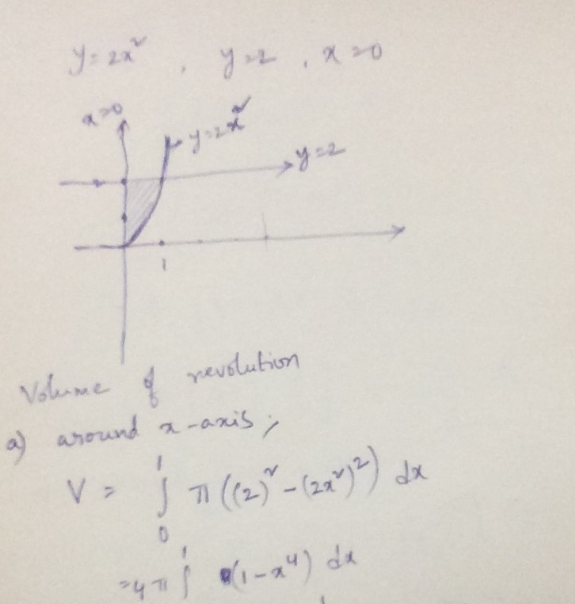 y=2x² , y=2 , x=0
x=0
y=2x²
y=2
1
Volume of revolution
a) around x-axis;
V = ∫₀¹ π((2)² - (2x²)²) dx
=4π ∫¹ (1-x⁴) dx